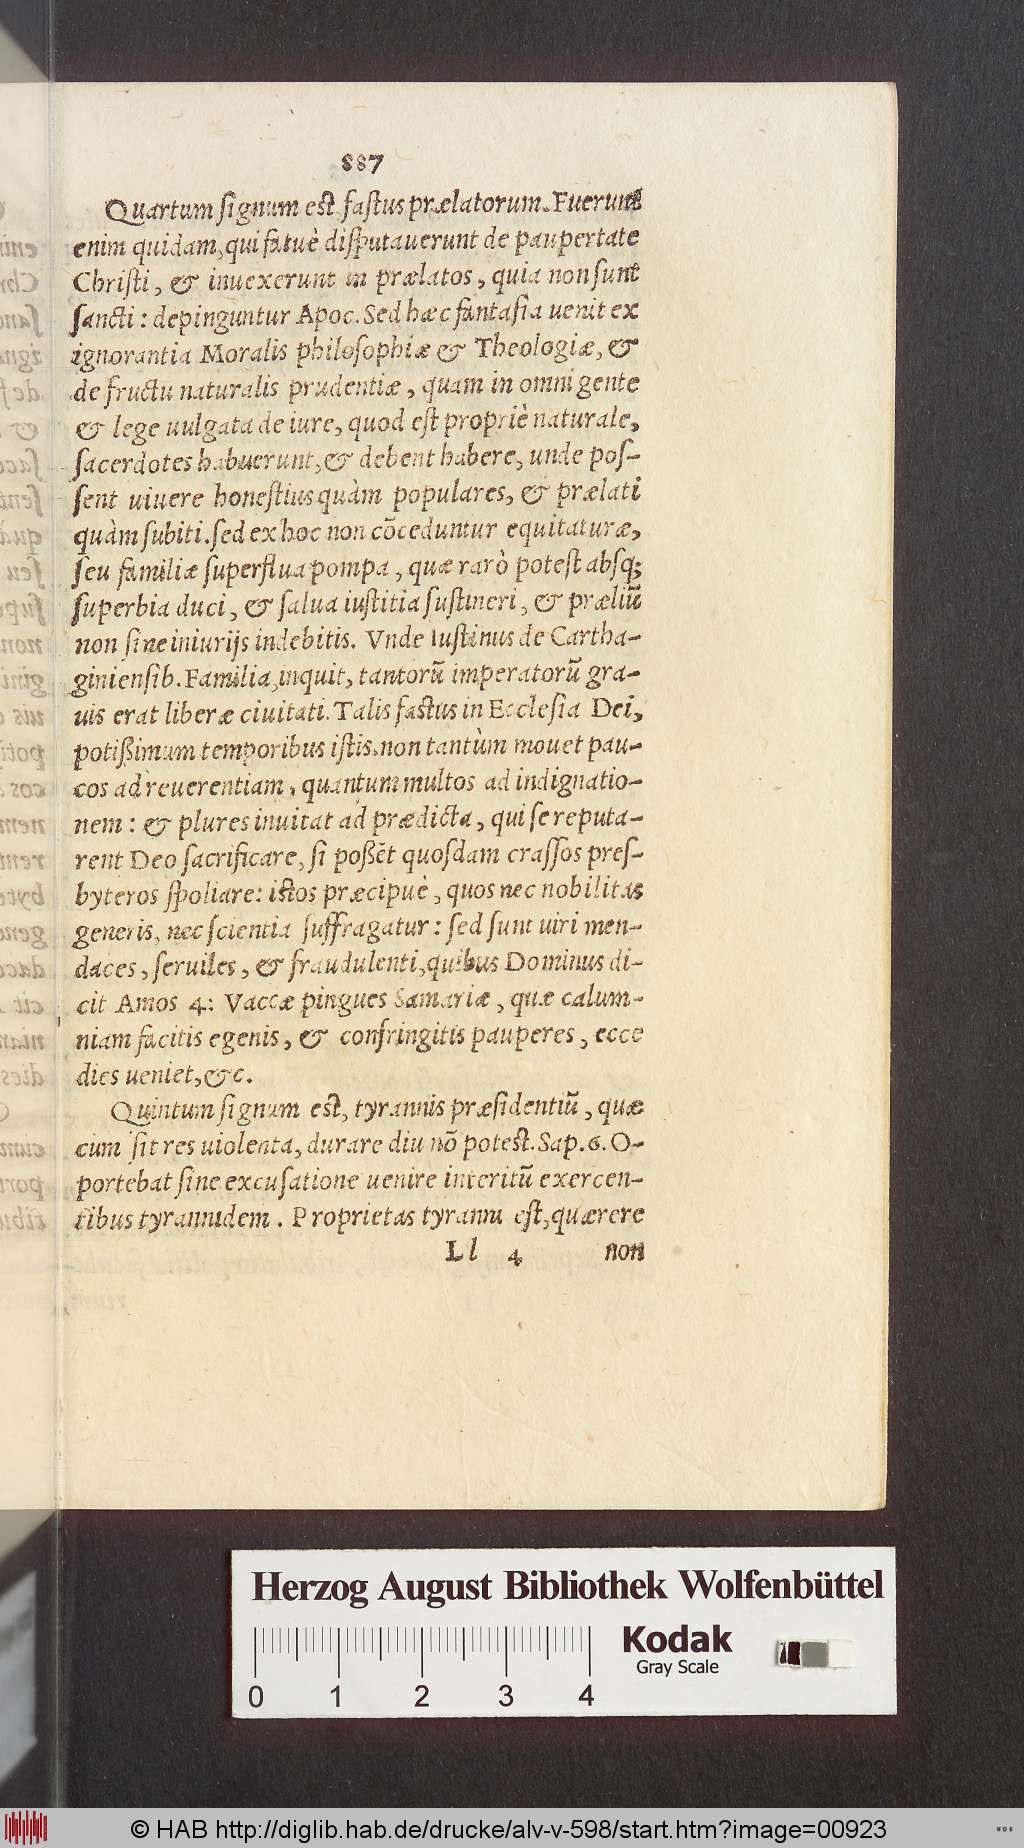 887
Quartum ſignum eſt faſtus prælatorum. Fuerunt
enim quidam, qui fatuè diſputauerunt de paupertate
Chriſti, & inuexerunt in prælatos, quia non ſunt
ſancti: depinguntur Apoc. Sed hæc fantaſia uenit ex
ignorantia Moralis philoſophiæ & Theologiæ, &
de fructu naturalis prudentiæ, quam in omni gente
& lege uulgata de iure, quod eſt propriè naturale,
ſacerdotes habuerunt, & debent habere, unde poſ-
ſent uiuere honeſtius quàm populares, & prælati
quàm ſubiti. ſed ex hoc non cōceduntur equitaturæ,
ſeu familiæ ſuperflua pompa, quæ rarò poteſt abſq;
ſuperbia duci, & ſalua iuſtitia ſuſtineri, & præliũ
non ſine iniurijs indebitis. Vnde Iuſtinus de Cartha-
ginienſib. Familia, inquit, tantorũ imperatorũ gra-
uis erat liberæ ciuitati. Talis faſtus in Eccleſia Dei,
potißimum temporibus iſtis, non tantùm mouet pau-
cos ad reuerentiam, quantum multos ad indignatio-
nem: & plures inuitat ad prædicta, qui ſe reputa-
rent Deo ſacrificare, ſi poßẽt quoſdam craſſos preſ-
byteros ſpoliare: iſtos præcipuè, quos nec nobilitas
generis, nec ſcientia ſuffragatur: ſed ſunt uiri men-
daces, ſeruiles, & fraudulenti, quibus Dominus di-
cit Amos 4: Vaccæ pingues Samariæ, quæ calum-
niam facitis egenis, & confringitis pauperes, ecce
dies ueniet, &c.
Quintum ſignum eſt, tyrannis præſidentiũ, quæ
cum ſit res uiolenta, durare diu nō poteſt. Sap. 6. O-
portebat ſine excuſatione uenire interitũ exercen-
tibus tyrannidem. Proprietas tyranni eſt, quærere
Ll 4 non
Herzog August Bibliothek Wolfenbüttel
Kodak
Gray Scale
0 1 2 3 4
© HAB http://diglib.hab.de/drucke/alv-v-598/start.htm?image=00923